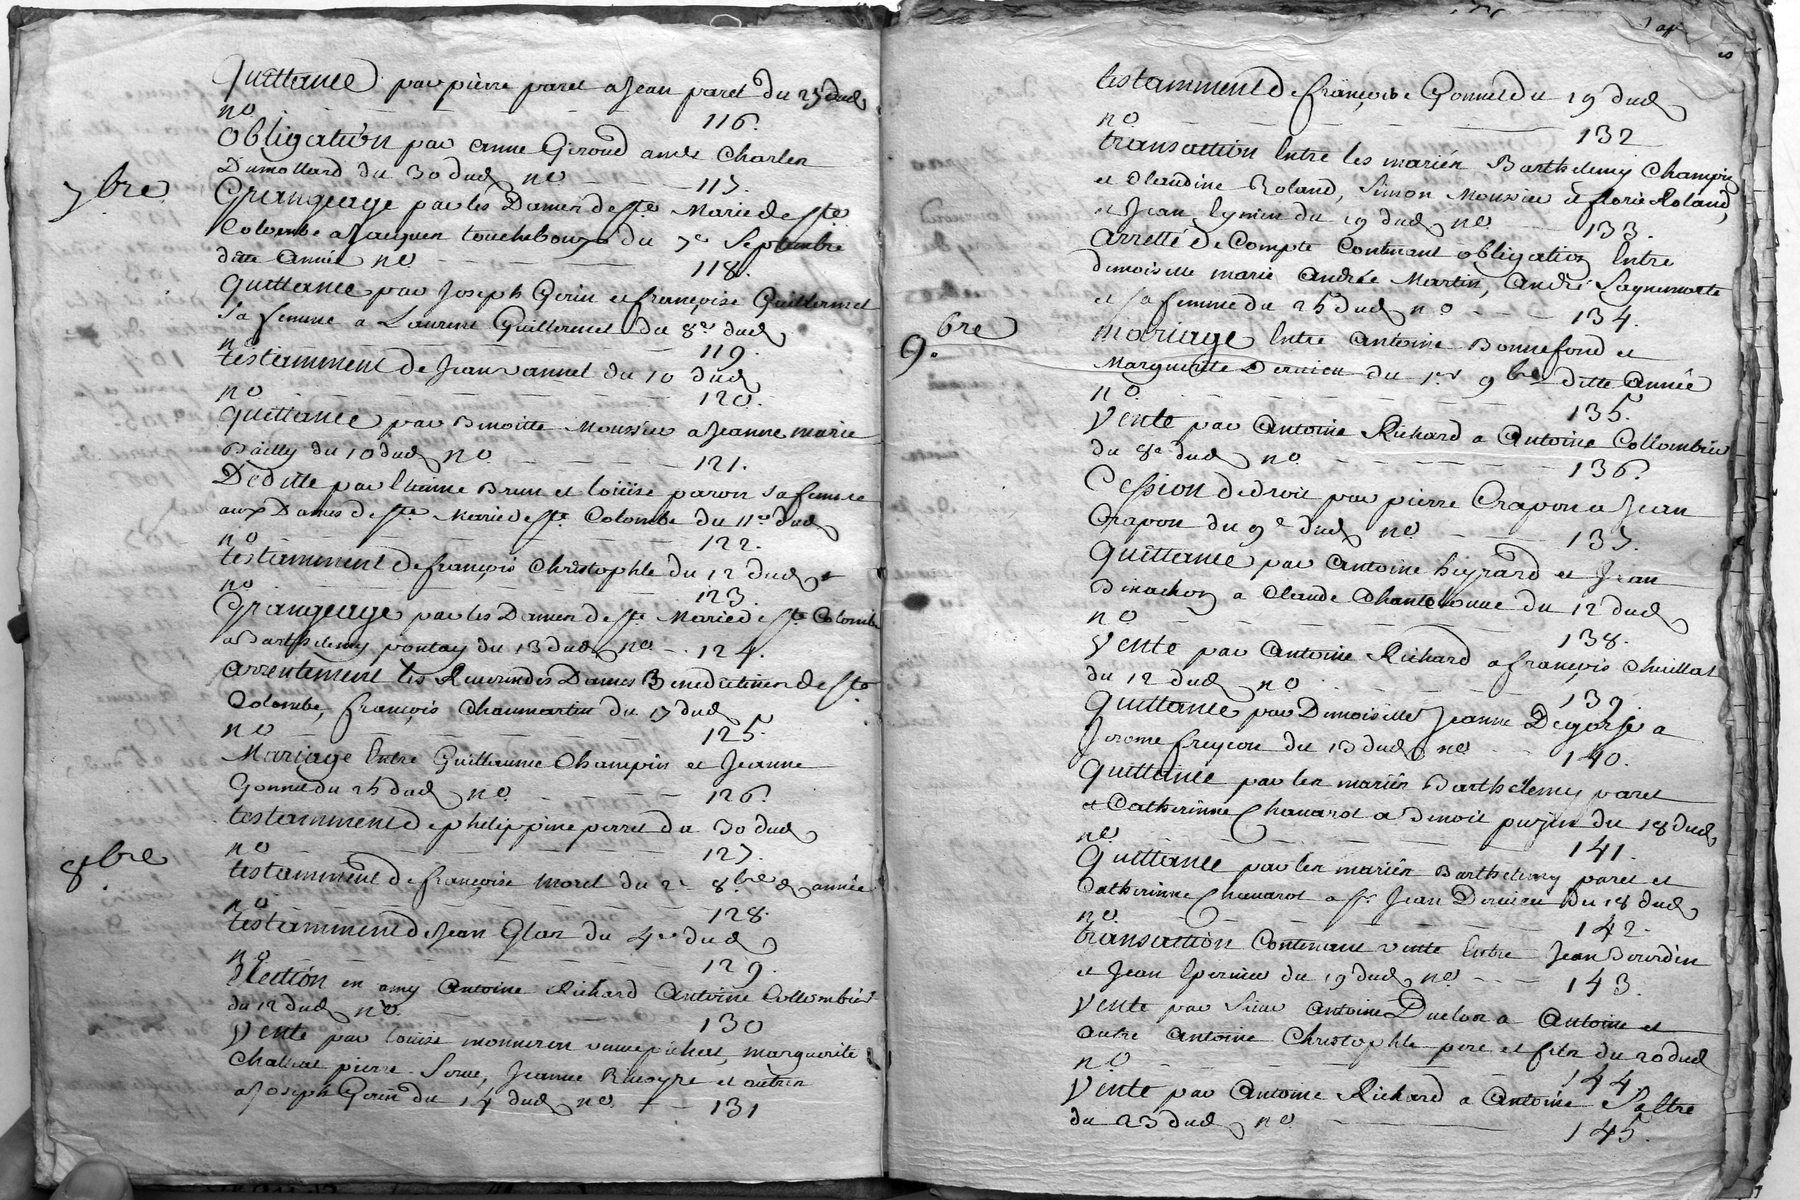 quittance par pierre paret a Jean paret du 25 dud
no 116.
obligation par anne Giroud a Charles
Dumollard du 30 dud no 117.
7bre
Grangeage par les Dames de Ste Marie de Ste
Colombe a Jacques du 7e Septembre
ditte année no 118.
quittance par Joseph Gerin et françoise Guillermet
Sa femme a Laurent Guillermet du 8e dud
no 119.
testamment de Jean vannel du 10 dud
no 120.
quittance par Benoitte Moussier a Jeanne marie
Bailly du 10 dud no 121.
Deditte par Etienne Brun et louise paron sa femme
aux Dames de Ste Marie de Ste Colombe du 11e dud
no 122.
testamment de françois Christophle du 12 dud
no 123.
Grangeage par les Dames de Ste Marie de Ste Colombe
a Barthelemy pontay du 13 dud no 124.
arrentement les Reverendes Dames Benedictines de Ste
Colombe, françois Chaumartin du 17 dud
no 125.
Mariage Entre Guillaume Champin et Jeanne
Gonnet du 25 dud no 126.
testamment de philippine perret du 30 dud
no 127.
8bre
testamment de françoise morel du 2e 8bre d. année
no 128.
testamment de Jean Glas du 4e dud
no 129.
Election en amy Antoine Richard Antoine Collombier
du 12 dud no 130
Vente par louise monneren veuve pichat, marguerite
Chalvat pierre Jeanne et autres
a Joseph Gerin du 14 dud no 131
testamment de françoise Gonnet du 19 dud
no 132
transaction Entre les mariés Barthelemy Champin
et Claudine Roland, Simon Moussier et florie Roland,
et Jean du 19 dud no 133.
arretté de Compte Contenant obligation Entre
demoiselle marie andrée Martin, André
et sa femme du 25 dud no 134.
9bre
mariage Entre antoine Bonnefond et
Marguerite Dervieu du 1er 9bre ditte année
no 135.
Vente par Antoine Richard a Antoine Collombier
du 8e dud no 136.
Cession de droit par pierre Crapon a Jean
Crapon du 9e dud no 137.
quittance par antoine et Jean
Dimachon a Claude du 12 dud
no 138.
Vente par Antoine Richard a françois Chuillat
du 12 dud no 139.
quittance par Demoiselle Jeanne Degorse a
Jerome freycon du 13 dud no 140.
quittance par les mariés Barthelemy paret
et Catherinne Chavarot a Benoit du 18 dud
no 141.
quittance par les mariés Barthelemy paret et
Catherinne Chavarot a Sr. Jean Dervieu du 18 dud
no 142.
transaction Contenant vente Entre Jean Jourdin
et Jean du 19 dud no 143.
Vente par Sieur Antoine Duclos a Antoine et
autre Antoine Christophle pere et fils du 20 dud
no 144.
Vente par Antoine Richard a Antoine
du 23 dud no 145.